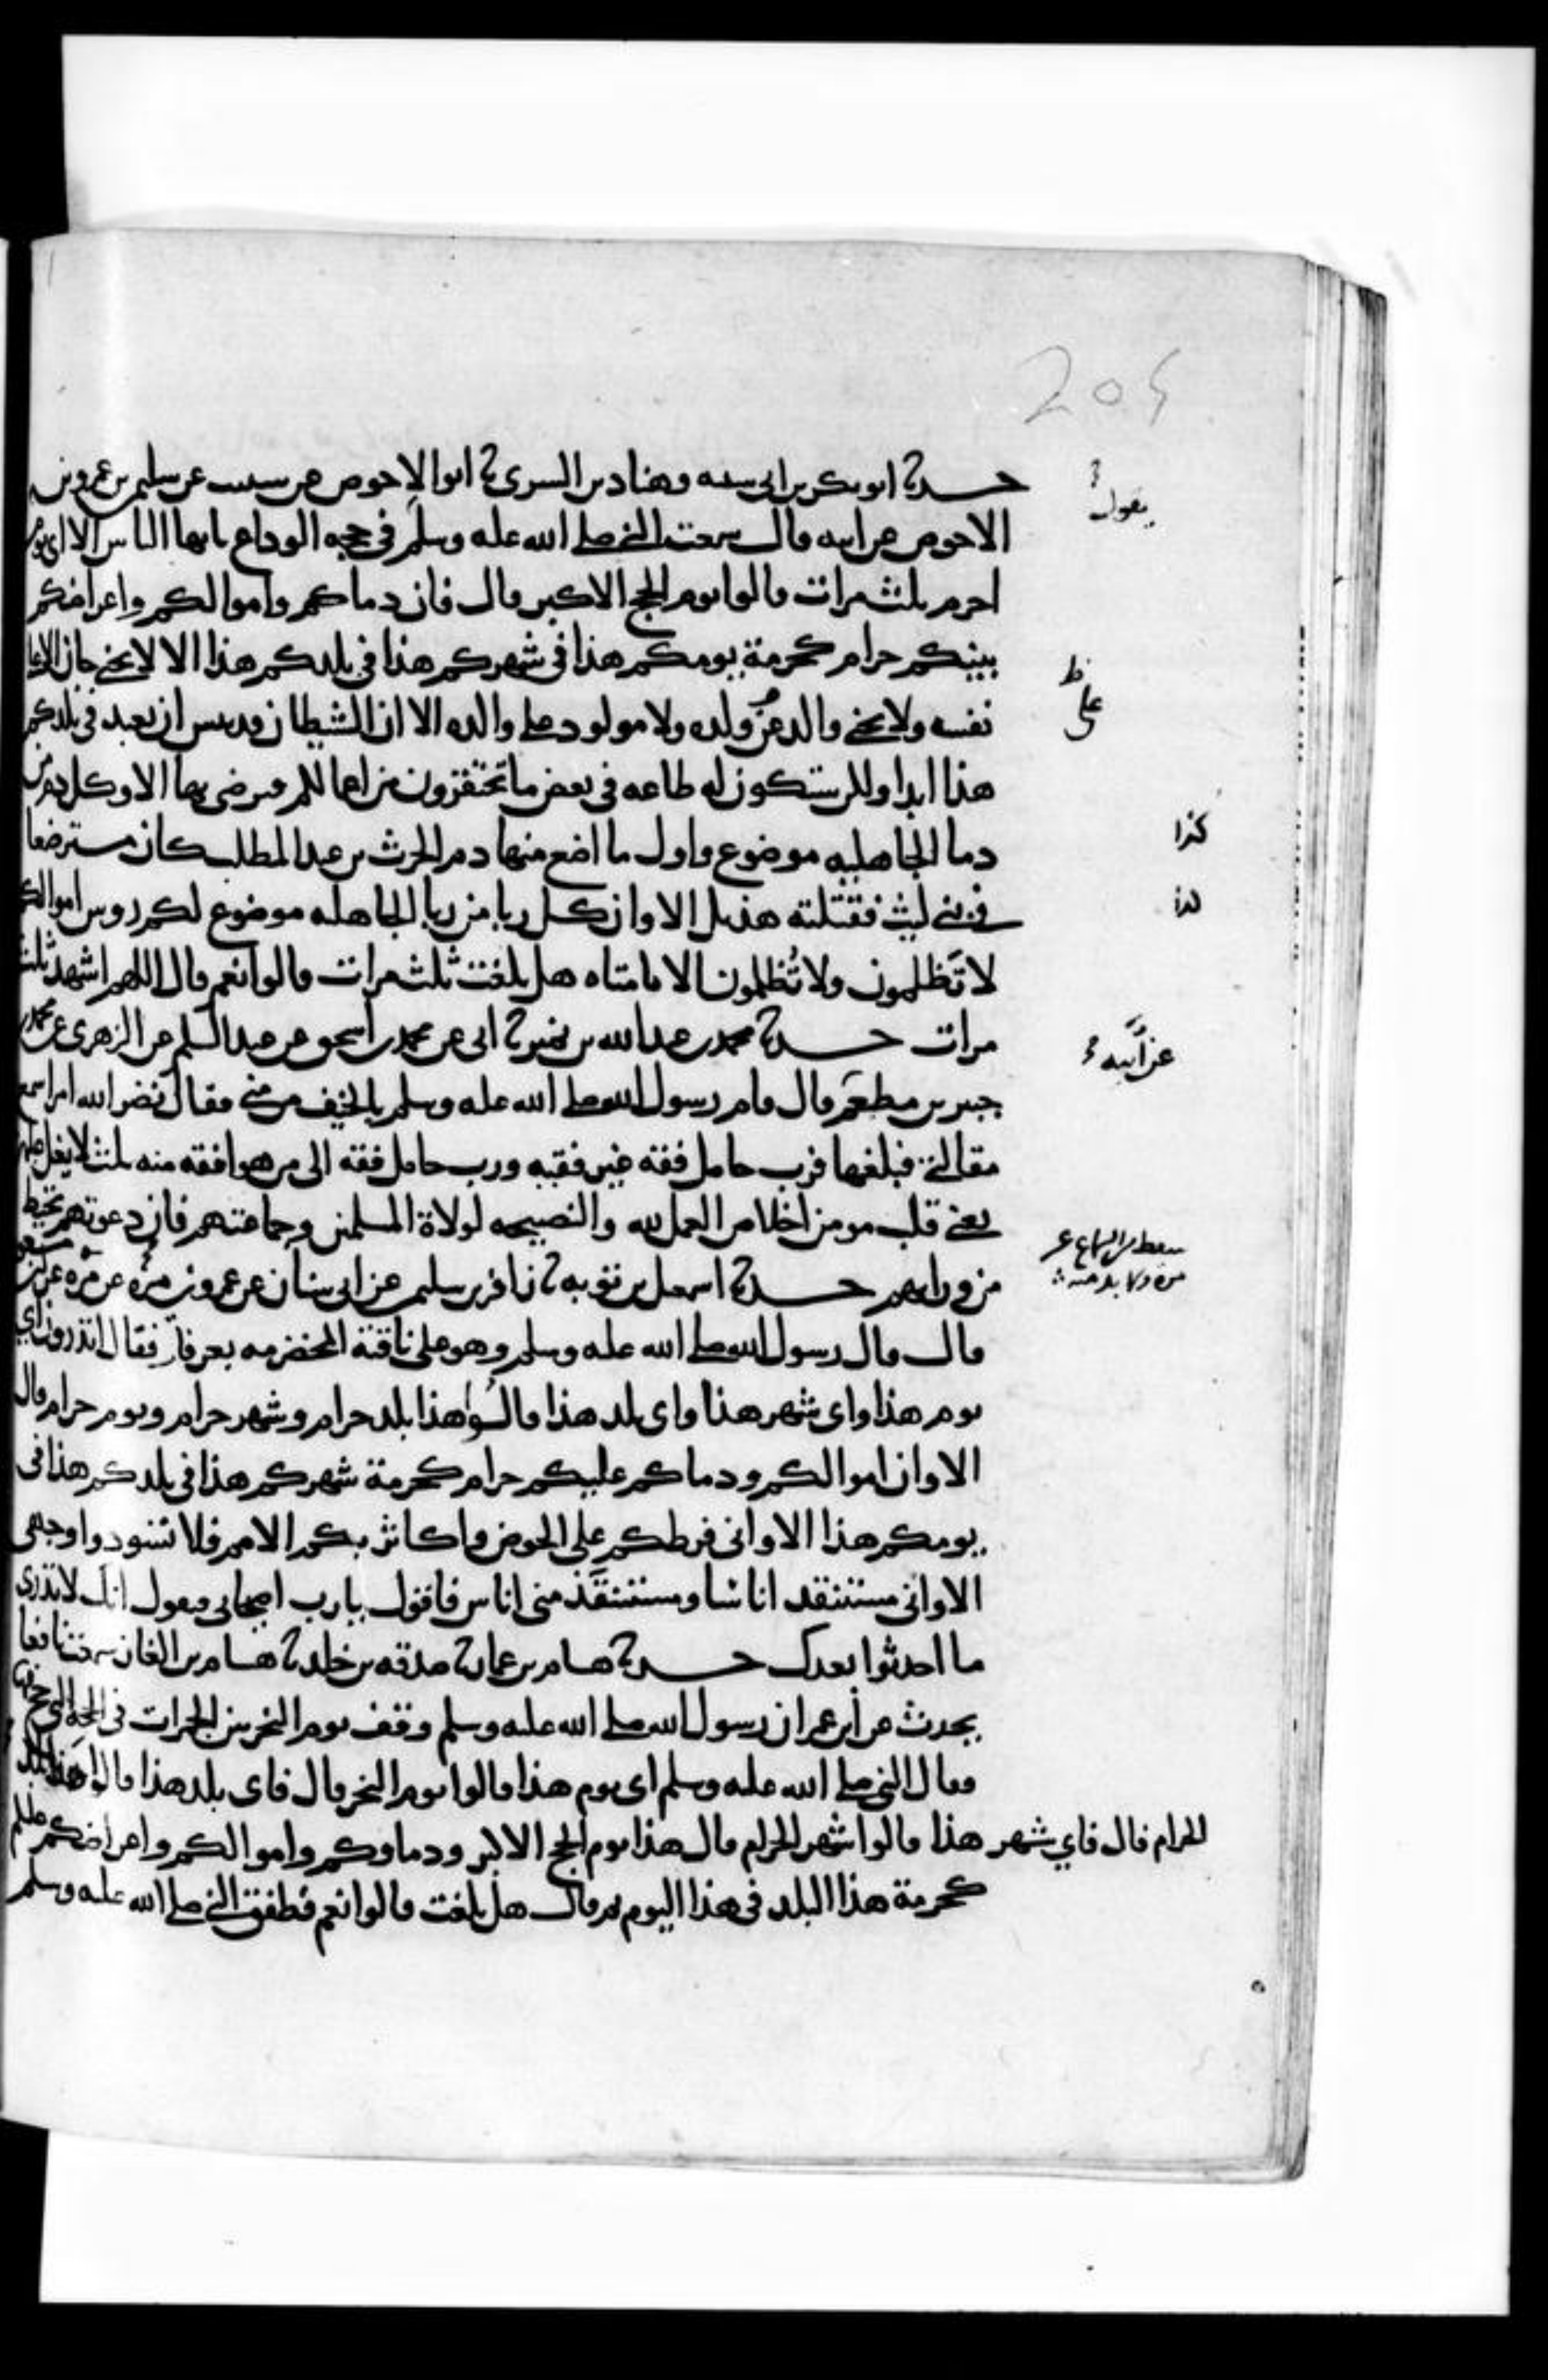 204
حدثنا ابو بكر بن ابى شيبه وهناد بن السرى نا ابو الاحوص عن شبيب عن سليمن بن عمرو بن
يقول
الاحوص عن ابيه قال سمعت النبي صلى الله عليه وسلم في حجه الوداع يايها الناس الا اى يوم
احرم ثلث مرات قالوا يوم الحج الاكبر قال فان دماكم واموالكم واعراضكم
بينكم حرام كحرمة يومكم هذا في شهركم هذا في بلدكم هذا الا لا يجني جان الا
على
نفسه ولا يجني والد عن ولده ولا مولود على والده الا ان الشيطان قد يس ان يعبد في بلدكم
هذا ابدا وللرستكون له طاعه في بعض ما تحتقرون من اعمالكم فيرضى بها الا وكل دم من
كذا
دما الجاهليه موضوع واول ما اضع منها دم الحرث بن عبد المطلب كان مسترضعا
كذا
في بني ليث فقتلته هذيل الا وان كل ربا من ربا الجاهليه موضوع لكم روس اموالكم
لا تَظلمون ولا تُظلمون الا يا متاه هل بلغت ثلث مرات قالوا نعم قال اللهم اشهد ثلث
مرات حدثنا محمد بن عبد الله بن نمير نا ابى عن محمد بن اسحق عن عبد السلم عن الزهرى عن محمد بن
عن ابيه
جبير بن مطعم قال قام رسول الله صلى الله عليه وسلم بالخيف من منى فقال نضر الله امرا سمع
مقالتي فبلغها فرب حامل فقه غير فقيه ورب حامل فقه الى من هو افقه منه ثلث لا يغل عليهن
يعني قلب مومن اخلاص العمل لله والنصيحه لولاة المسلمين وجماعتهم فان دعوتهم تحيط
سقط من السماع عن
مره ولا بد منه
من ورايهم حدثنا اسمعيل بن توبه نا زافر بن سليمن عن ابى سنان عن عمرو بن مره عن مره عن ابن مسعود
قال قال رسول الله صلى الله عليه وسلم وهو على ناقته المخضرمه بعرفات فقال اتدرون اي
يوم هذا واى شهر هذا واى بلد هذا قالوا هذا بلد حرام وشهر حرام ويوم حرام قال
الا وان اموالكم ودماكم عليكم حرام كحرمة شهركم هذا في بلدكم هذا في
يومكم هذا الا وانى فرطكم على الحوض واكاثر بكم الامم فلا تسودوا وجهى
الا وانى مستنقذ اناسا ومستنقَذ منى اناس فاقول يا رب اصيحابى فيقول انك لا تدرى
ما احدثوا بعدك حدثنا هشام بن عمار نا صدقه بن خالد نا هشام بن الغاز سمعت نافعا
يحدث عن ابن عمر ان رسول الله صلى الله عليه وسلم وقف يوم النحر بين الجمرات في الحجه التي حج
فقال النبي صلى الله عليه وسلم اى يوم هذا قالوا يوم النحر قال فاى بلد هذا قالوا هذا بلد الله
الحرام قال فاي شهر هذا قالوا شهر الحرام قال هذا يوم الحج الاكبر ودماوكم واموالكم واعراضكم عليكم
كحرمة هذا البلد في هذا اليوم ثم قال هل بلغت قالوا نعم فطفق النبي صلى الله عليه وسلم